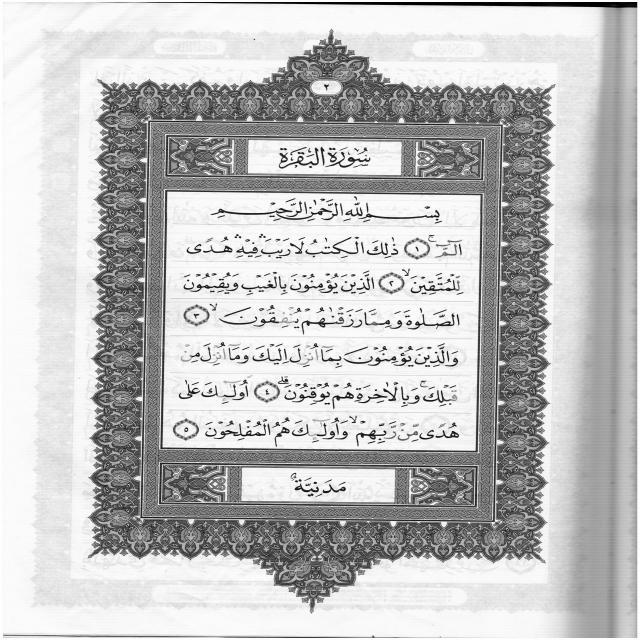 ٢
سُورَةُ الْبَقَرَةِ
بِسْمِ اللّٰهِ الرَّحْمٰنِ الرَّحِيْمِ
الٓمّٓ ۚ ﴿١﴾ ذٰلِكَ الْكِتٰبُ لَا رَيْبَ ۛ فِيْهِ ۛ هُدًى
لِّلْمُتَّقِيْنَ ۙ ﴿٢﴾ الَّذِيْنَ يُؤْمِنُوْنَ بِالْغَيْبِ وَيُقِيْمُوْنَ
الصَّلٰوةَ وَمِمَّا رَزَقْنٰهُمْ يُنْفِقُوْنَ ۙ ﴿٣﴾
وَالَّذِيْنَ يُؤْمِنُوْنَ بِمَآ اُنْزِلَ اِلَيْكَ وَمَآ اُنْزِلَ مِنْ
قَبْلِكَ ۚ وَبِالْاٰخِرَةِ هُمْ يُوْقِنُوْنَ ۗ ﴿٤﴾ اُولٰٓئِكَ عَلٰى
هُدًى مِّنْ رَّبِّهِمْ ۙ وَاُولٰٓئِكَ هُمُ الْمُفْلِحُوْنَ ﴿٥﴾
مَدَنِيَّةٌ